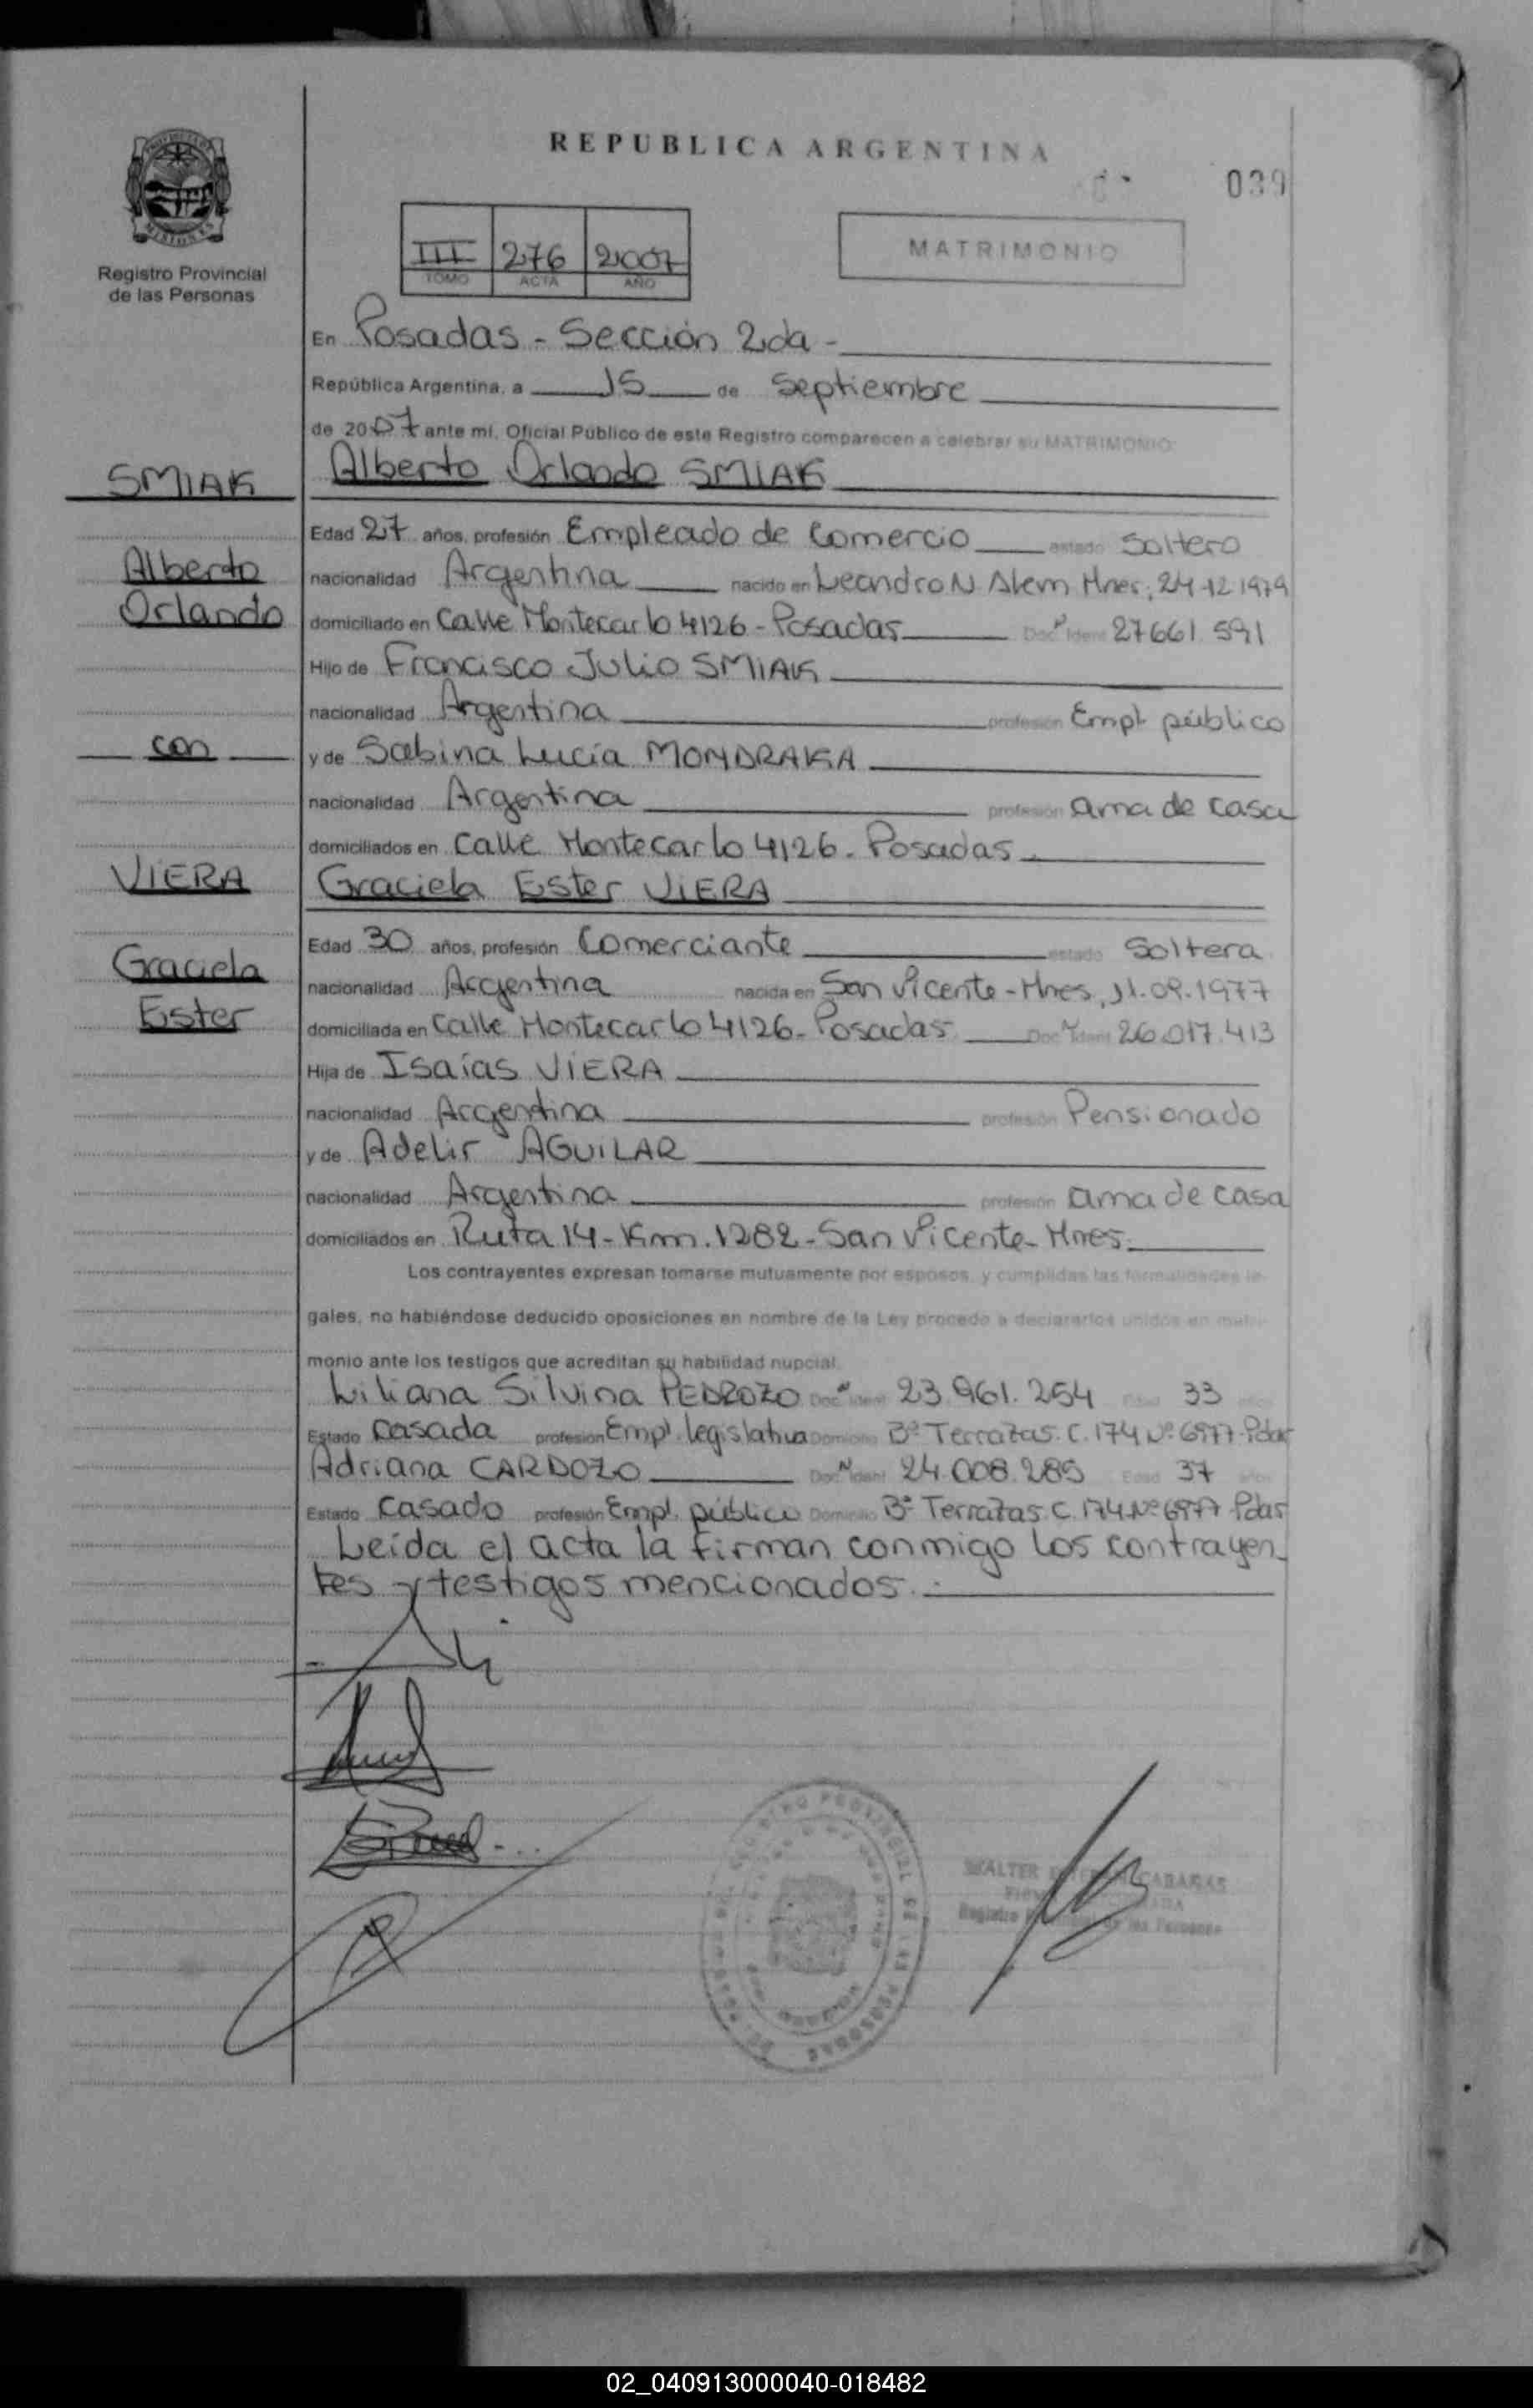 REPUBLICA ARGENTINA
039
Registro Provincial
de las Personas
III 276 2007
TOMO ACTA AÑO
MATRIMONIO
En Posadas - Sección 2da -
República Argentina, a 15 de Septiembre
de 2007 ante mí, Oficial Público de este Registro comparecen a celebrar su MATRIMONIO:
SMIAK
Alberto Orlando SMIAK
Edad 27 años, profesión Empleado de Comercio estado Soltero
Alberto
nacionalidad Argentina nacido en Leandro N. Alem Mnes, 24-12-1979
Orlando
domiciliado en Calle Montecarlo 4126 - Posadas Doc. Ident. 27.661.591
Hijo de Francisco Julio SMIAK
nacionalidad Argentina profesión Empl. público
con
y de Sabina Lucía MONDRAKA
nacionalidad Argentina profesión ama de casa
domiciliados en Calle Montecarlo 4126 - Posadas
VIERA
Graciela Ester VIERA
Edad 30 años, profesión Comerciante estado Soltera
Graciela
nacionalidad Argentina nacida en San Vicente - Mnes, 11.09.1977
Ester
domiciliada en Calle Montecarlo 4126 - Posadas Doc. Ident. 26.017.413
Hija de Isaías VIERA
nacionalidad Argentina profesión Pensionado
y de Adelir AGUILAR
nacionalidad Argentina profesión ama de casa
domiciliados en Ruta 14 - Km. 1282 - San Vicente - Mnes.
Los contrayentes expresan tomarse mutuamente por esposos, y cumplidas las formalidades le-
gales, no habiéndose deducido oposiciones en nombre de la Ley procedo a declararlos unidos en matri-
monio ante los testigos que acreditan su habilidad nupcial.
Liliana Silvina PEDROZO Doc. Ident. 23.961.254 Edad 33 años
Estado Casada profesión Empl. legislativa Domicilio Bº Terrazas. C. 174 Nº 6977 - Pdas
Adriana CARDOZO Doc. Ident. 24.008.285 Edad 37 años
Estado Casado profesión Empl. público Domicilio Bº Terrazas. C. 174 Nº 6977 - Pdas
Leída el acta la firman conmigo los contrayen-
tes y testigos mencionados.
WALTER CABAÑAS
Registro de las Personas
02_040913000040-018482